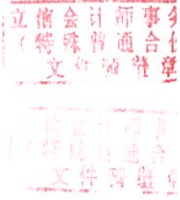 立信会计师事务
(特殊普通合伙
文件骑缝章
会计师事
特殊普通合
文件骑缝章